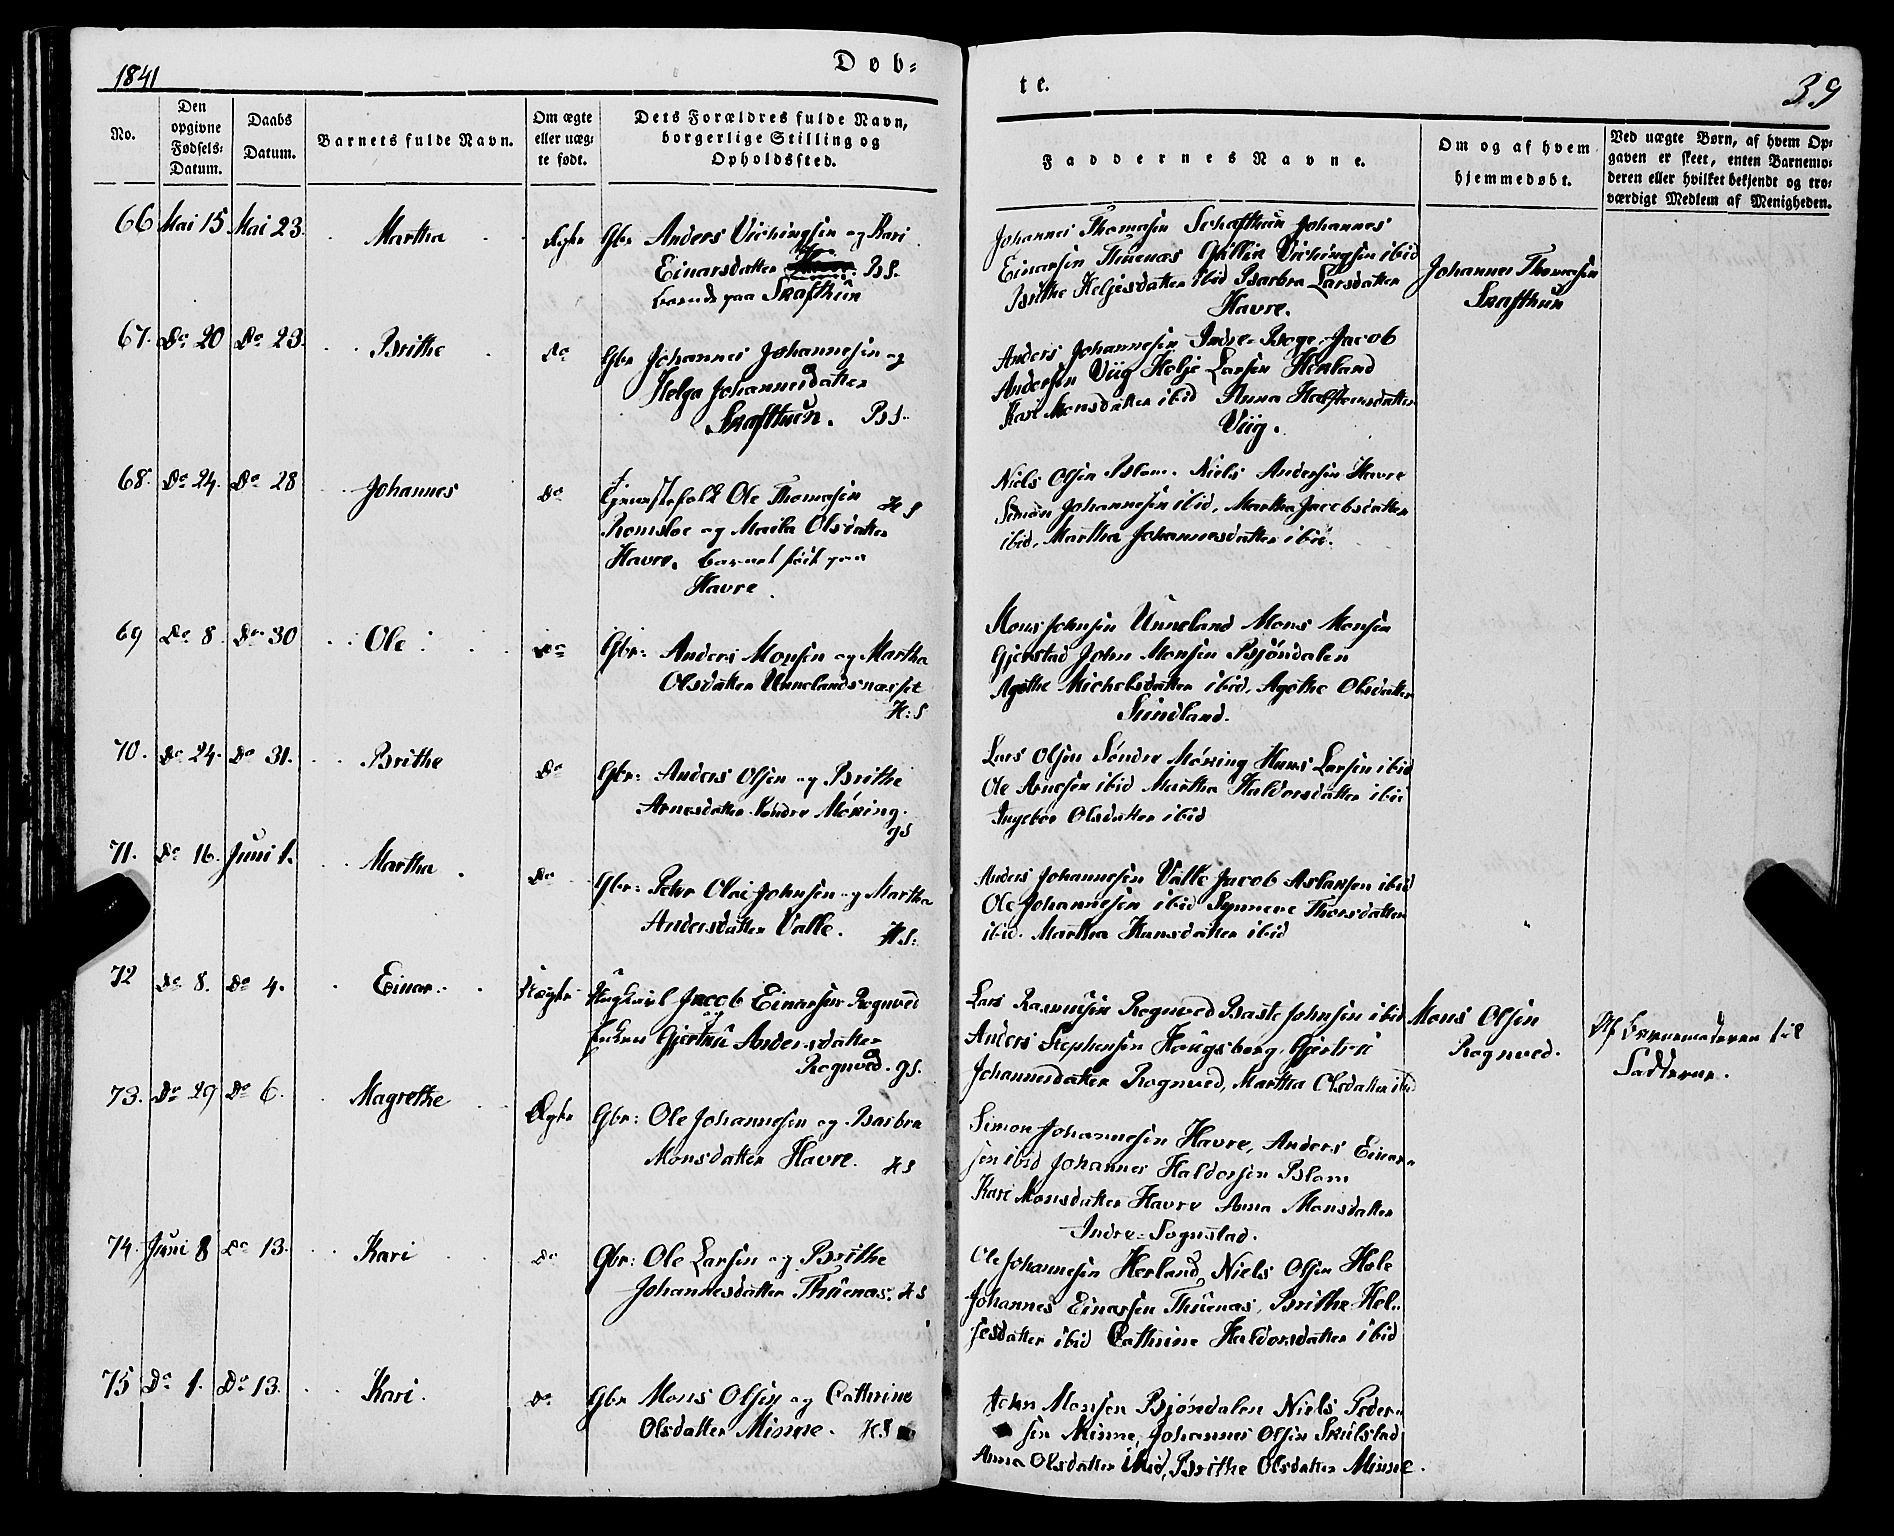 1841
Døb=
te.
39
No.
Den opgivne Fødsels= Datum.
Daabs Datum.
Barnets fulde Navn.
Om ægte eller uæg= te født.
Dets Forældres fulde Navn, borgerlige Stilling og Opholdssted.
Faddernes Navne.
Om og af hvem hjemmedøbt.
Ved uægte Børn, af hvem Op= gaven er skeet, enten Barnemo= deren eller hvilket bekjendt og tro= værdigt Medlem af Menigheden.
66 Mai 15. Mai 23. Martha Ægte Gbr Anders Vichingsen og Kari
Einarsdatter BS.
paa Skafthun
Johannes Thomasen Schafthun Johannes
Einarsen Thuenæs Vichingsen ibid
Brithe Heljesdatter ibid Barbra Larsdatter
Havre.
Johannes Thomasen
Skafthun
67. Do 20 Do 23. Brithe Do Gbr Johannes Johannesen og
Helga Johannesdatter
Skafthun. BS.
Anders Johannesen Indre-Boge Jacob
Andersen Viig Helje Larsen Herland
Kari Monsdatter ibid Anna
Viig.
68. Do 24. Do 28 Johannes Do Tjenestefolk Ole Thomasen HS
Romsloe og Olsdatter
Havre. barnet født paa
Havre.
Niels Olsen Blom. Niels Andersen Havre
Simon Johannesen ibid, Martha Jacobsdatter
ibid, Martha Johannesdatter ibid.
69 Do 8. Do 30 Ole Do Gbr: Anders Monsen og Martha
Olsdatter Unnelandsnæsset
H:S
Mons Johnsen Unneland Mons Monsen
Gjerstad John Monsen Bjøndalen
Agathe Michelsdatter ibid, Agathe Olsdatter
Sundland.
70. Do 24. Do 31. Brithe Do Gbr: Anders Olsen og Brithe
Arnesdatter Søndre Møring.
gS
Lars Olsen Søndre Møring Hans Larsen ibid
Ole Arnesen ibid Martha Haldorsdatter ibid
Ingebor Olsdatter ibid
71. Do 16. Juni 1. Martha Do Gbr: Peter Olai Johnsen og Martha
Andersdatter Valle. H.S:
Anders Johannesen Valle Jacob Aslaksen ibid
Ole Johannesen ibid Synneve Thorsdatter
ibid. Martha Hansdatter ibid
72 Do 8. Do 4. Einar Uægte Ungkarl Jacob Einarsen Rognved
og
Gjertru Andersdatter
Rognved. gS.
Lars Rasmusen Rognved Baste Johnsen ibid
Anders Stephensen Hougsberg, Gjertru
Johannesdatter Rognved, Martha Olsdatter ibid
Mons Olsen
Rognved.
Af Barnemoderen til
Fadderne.
73. Do 29 Do 6. Magrethe Ægte Gbr: Ole Johannesen og Barbra
Monsdatter Havre. HS
Simon Johannesen Havre, Anders Einar=
sen ibid Johannes Haldorsen Blom
Kari Monsdatter Havre Anna Monsdatter
Indre-Sognstad.
74. Juni 8 Do 13. Kari Do Gbr: Ole Larsen og Brithe
Johannesdatter Thuenæs. HS
Ole Johannesen Herland, Niels Olsen Hole
Johannes Einarsen Thuenæs, Brithe Hel=
jesdatter ibid Cathrine Haldorsdatter ibid
75 Do 1. Do 13. Kari. Do Gbr Mons Olsen og Cathrine
Olsdatter Minne. HS
John Monsen Bjøndalen Niels Peder=
sen Minne, Johannes Olsen Skulstad
Anna Olsdatter ibid, Brithe Olsdatter Minne.